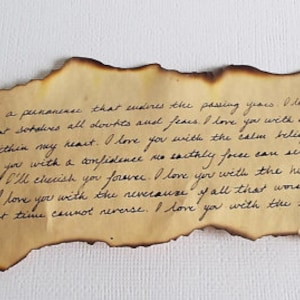 a permanence that endures the passing years. I lo
t solves all doubts and fears. I love you with
ithin my heart. I love you with the calm belie
you with a confidence no earthly force can se
I'll cherish you forever. I love you with the h
love you with the reverence of all that wor
t time cannot reverse. I love you with the